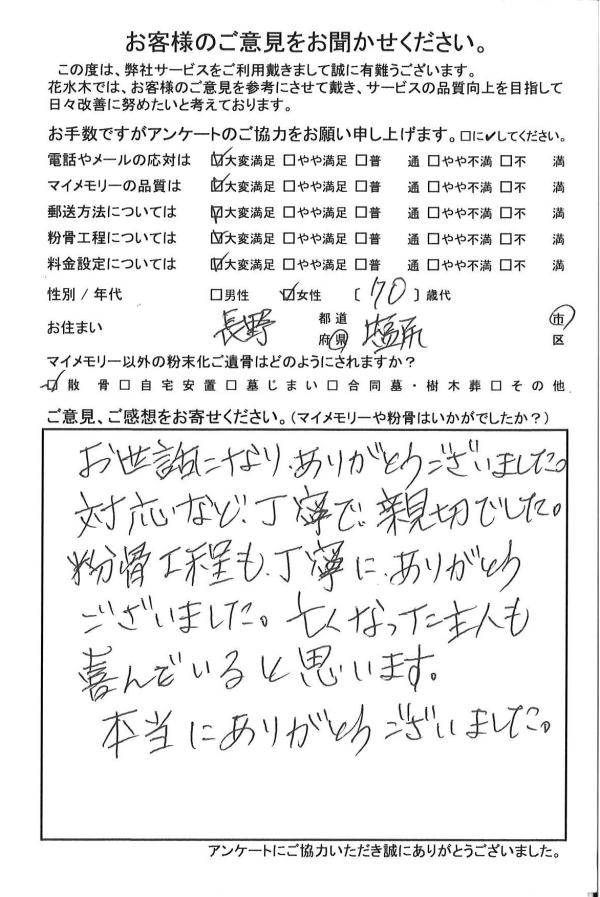 お客様のご意見をお聞かせください。
この度は、弊社サービスをご利用戴きまして誠に有難うございます。
花水木では、お客様のご意見を参考にさせて戴き、サービスの品質向上を目指して
日々改善に努めたいと考えております。
お手数ですがアンケートのご協力をお願い申し上げます。□に✓してください。
電話やメールの応対は ☑大変満足 □やや満足 □普 通 □やや不満 □不 満
マイメモリーの品質は ☑大変満足 □やや満足 □普 通 □やや不満 □不 満
郵送方法については ☑大変満足 □やや満足 □普 通 □やや不満 □不 満
粉骨工程については ☑大変満足 □やや満足 □普 通 □やや不満 □不 満
料金設定については ☑大変満足 □やや満足 □普 通 □やや不満 □不 満
性別 / 年代 □男性 ☑女性 〔 70 〕歳代
お住まい 長野 都道府県 塩尻 市区
マイメモリー以外の粉末化ご遺骨はどのようにされますか？
☑散 骨 □自宅安置 □墓じまい・□合同墓・樹木葬 □その他
ご意見、ご感想をお寄せください。（マイメモリーや粉骨はいかがでしたか？）
お世話になり、ありがとうございました。
対応など、丁寧で、親切でした。
粉骨工程も、丁寧に、ありがとう
ございました。亡くなった主人も
喜んでいると思います。
本当にありがとうございました。
アンケートにご協力いただき誠にありがとうございました。